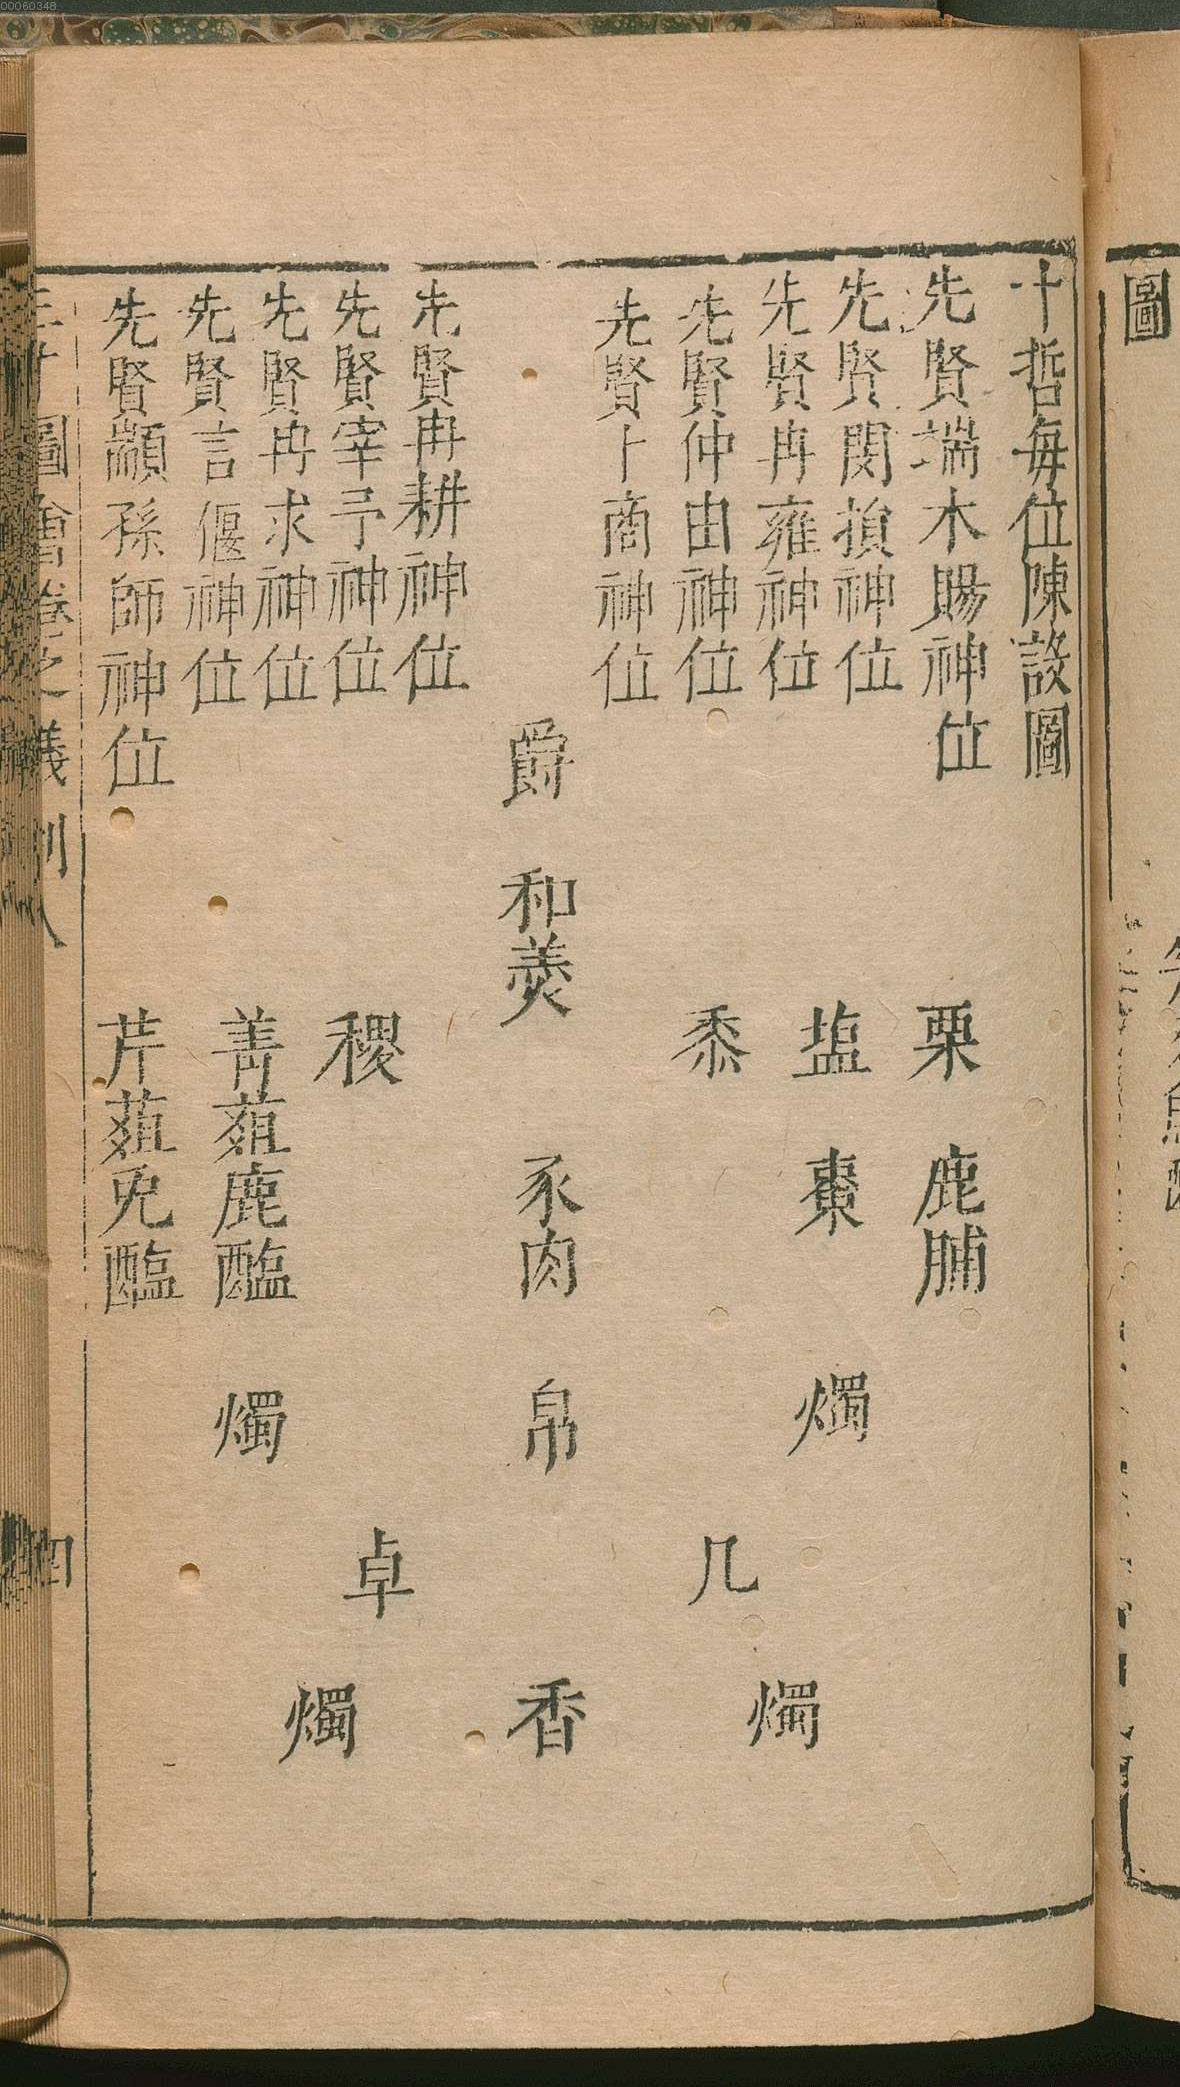 00060348
圖
十哲每位陳設圖
先賢端木賜神位
先賢閔損神位
先賢冉雍神位
先賢仲由神位
先賢卜商神位
先賢冉耕神位
先賢宰予神位
先賢冉求神位
先賢言偃神位
先賢顓孫師神位
爵
和羹
栗
塩
黍
稷
菁菹鹿醢
芹菹兎醢
鹿脯
棗
豕肉
燭
帛
燭
几
卓
燭
香
燭
圖會卷之儀制八
四